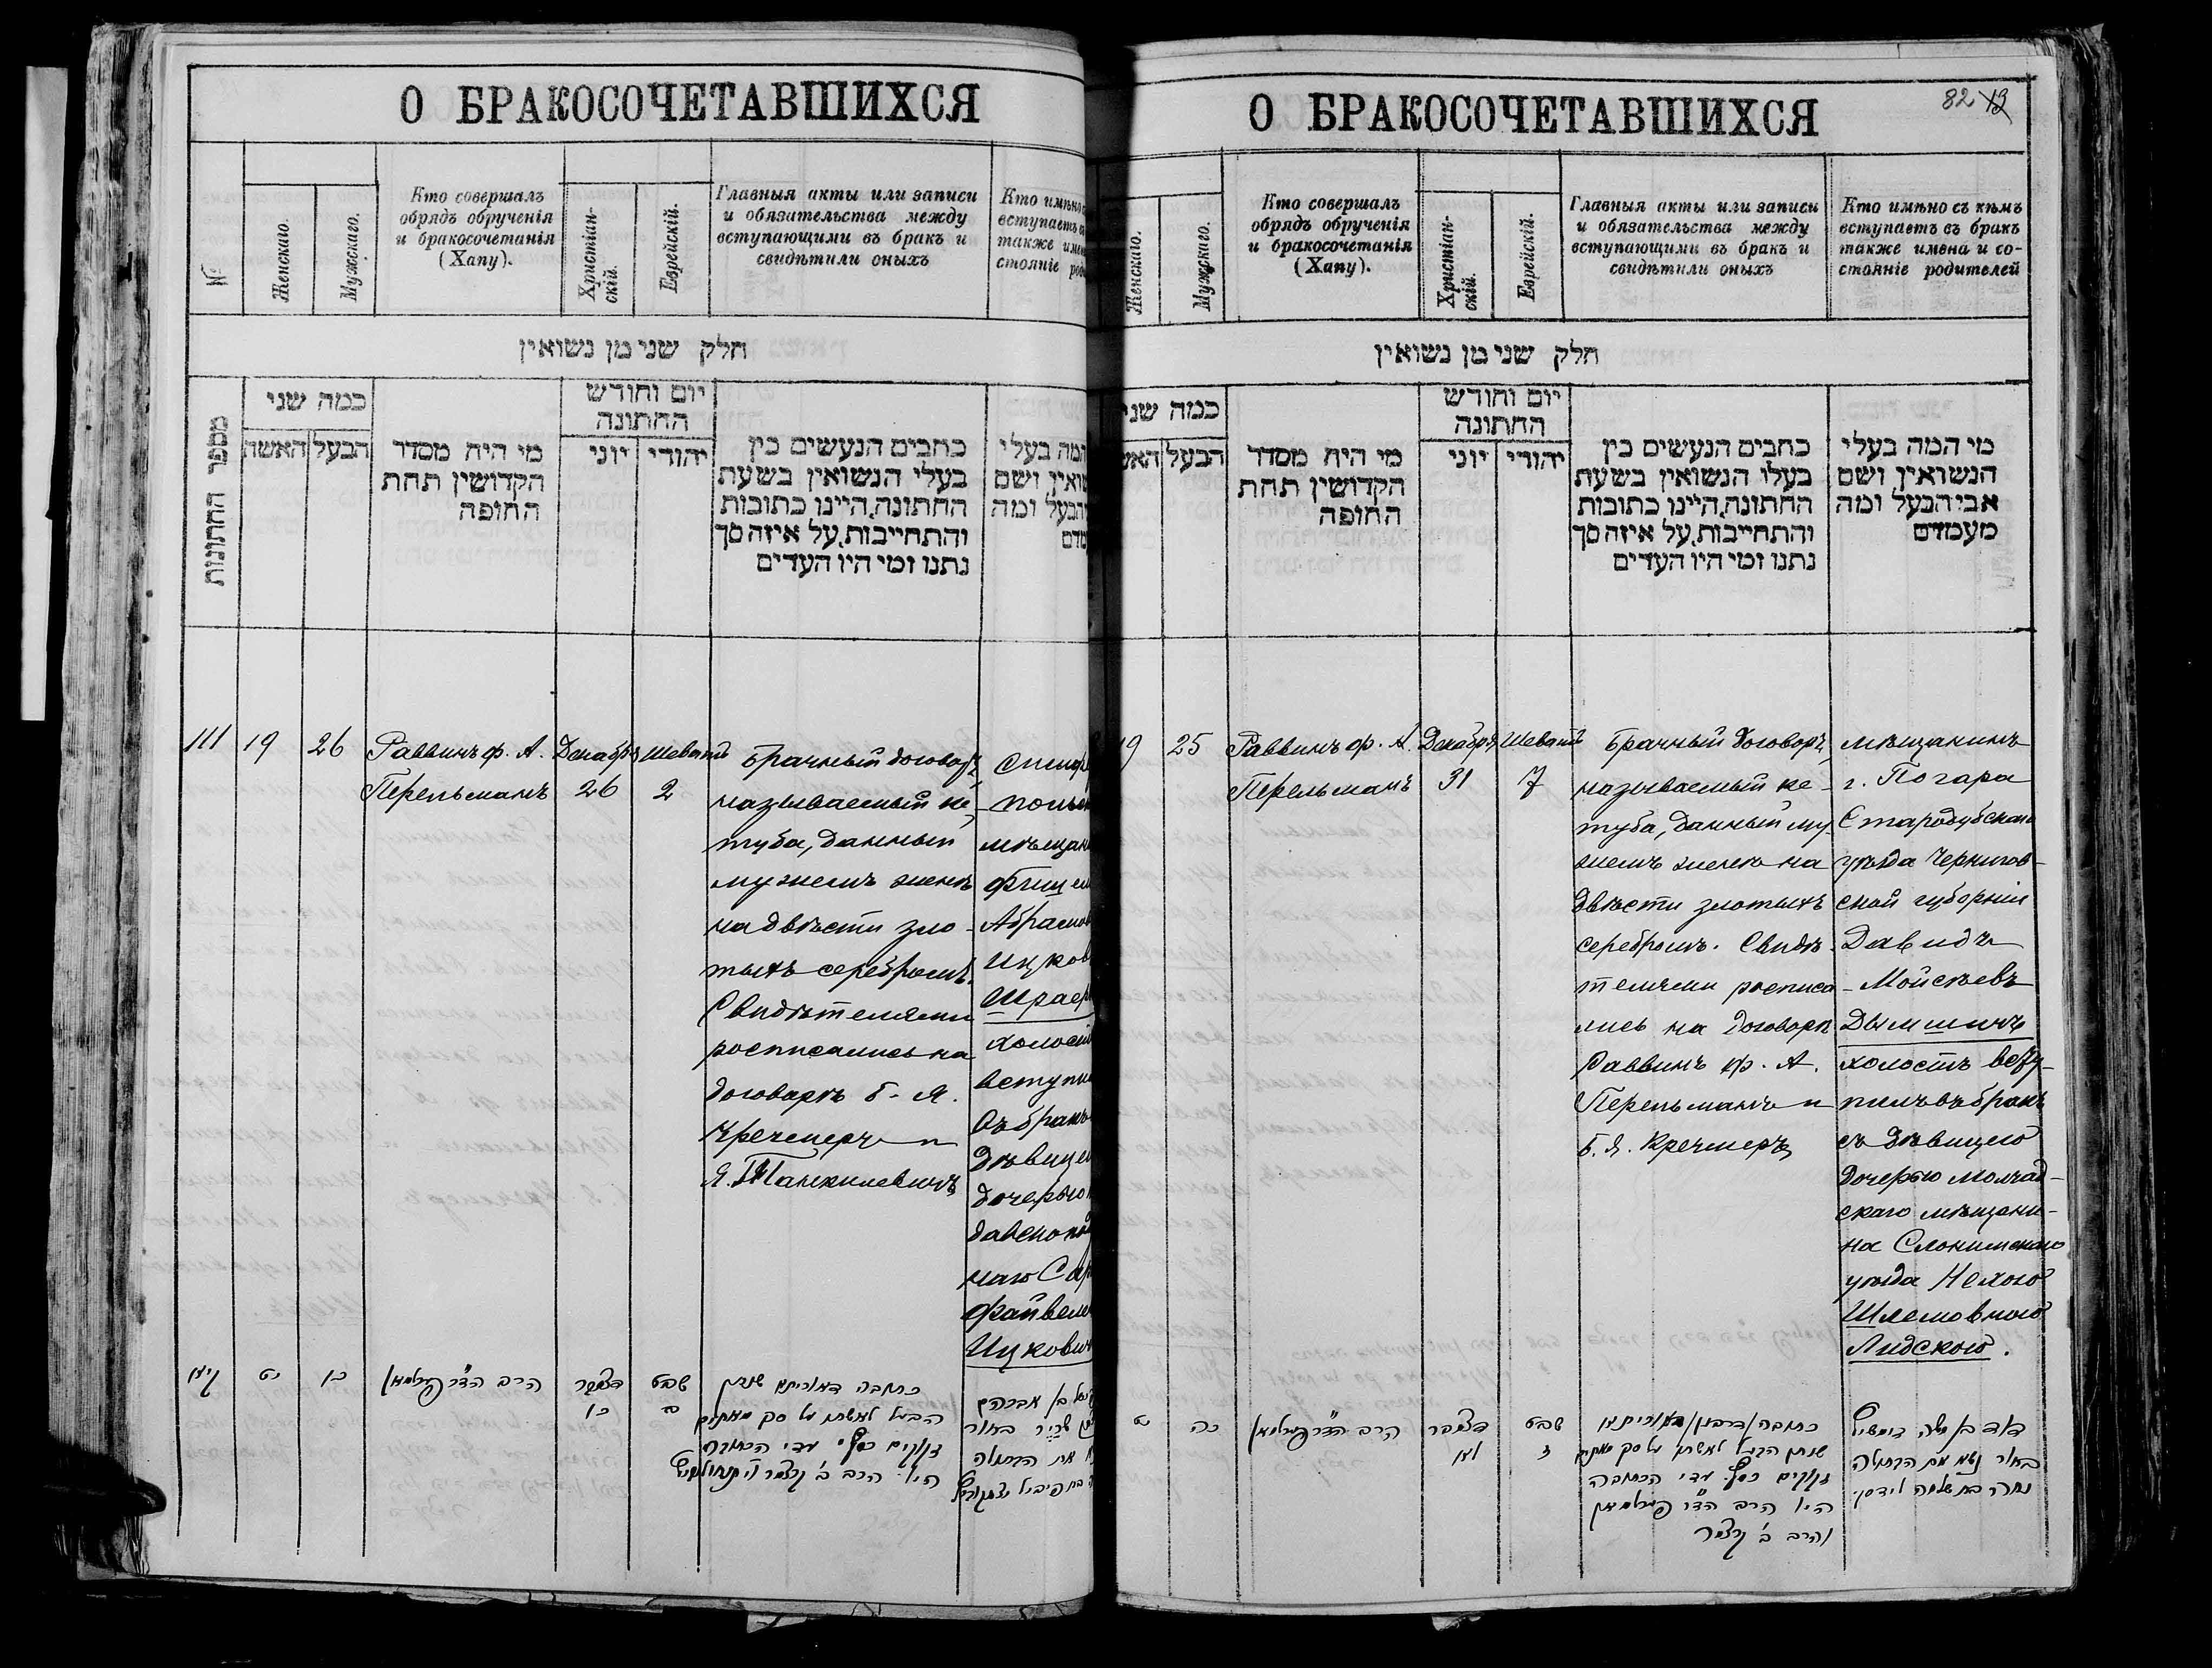 О БРАКОСОЧЕТАВШИХСЯ
№
Женскаго.
Мужскаго.
Кто совершалъ
обрядъ обрученія
и бракосочетанія
(Хапу).
Христіан-
скій.
Еврейскій.
Главныя акты или записи
и обязательства между
вступающими въ бракъ и
свидѣтили оныхъ
Кто имѣно
вступаетъ
также
стояніе
חלק שני מן נשואין
מספר החתונות
כמה שני
האשה
הבעל
מי היה מסדר
הקדושין תחת
החופה
יום וחודש
החתונה
יוני
יהודי
כתבים הנעשים בין
בעלי הנשואין בשעת
החתונה, היינו כתובות
והתחייבות, על איזה סך
נתנו ומי היו העדים
המה בעלי
ושם
הבעל ומה
111
19
26
Раввинъ ф. А.
Перельманъ
Декабря
26
Шеватъ
2
Брачный договоръ,
называемый ке-
туба, данный
мужемъ женѣ
на двѣсти зло-
тыхъ серебромъ.
Свидѣтелями
росписались на
договорѣ Б. Я.
Кречмеръ и
Я. Танхилевичъ
קיא
יט
כו
הרב הד״ר פערלמאן
דצמבר
כו
שבט
ב
כתובה דאוריתא שנתן
הבעל לאשתו על סך מאתים
זקוקים כסף. עדי הכתובה
היו: הרב ב׳ קרצמר
О БРАКОСОЧЕТАВШИХСЯ
82
Женскаго.
Мужскаго.
Кто совершалъ
обрядъ обрученія
и бракосочетанія
(Хапу).
Христіан-
скій.
Еврейскій.
Главныя акты или записи
и обязательства между
вступающими въ бракъ и
свидѣтили оныхъ
Кто имѣно съ кѣмъ
вступаетъ въ бракъ
также имена и со-
стояніе родителей
חלק שני מן נשואין
כמה שני
הבעל
מי היה מסדר
הקדושין תחת
החופה
יום וחודש
החתונה
יוני
יהודי
כתבים הנעשים בין
בעלי הנשואין בשעת
החתונה, היינו כתובות
והתחייבות, על איזה סך
נתנו ומי היו העדים
מי המה בעלי
הנשואין ושם
אבי הבעל ומה
מעמדם
19
25
Раввинъ ф. А.
Перельманъ
Декабря
31
Шеватъ
7
Брачный договоръ,
называемый ке-
туба, данный му-
жемъ женѣ на
двѣсти злотыхъ
серебромъ. Свидѣ-
телями росписа-
лись на договорѣ
Раввинъ ф. А.
Перельманъ и
Б. Я. Кречмеръ
мѣщанинъ
г. Погара
Стародубскаго
уѣзда Чернигов-
ской губерніи
Давидъ
Мойсѣевъ
Дымшицъ
холостъ всту-
пилъ въ бракъ
съ дѣвицею
дочерью молчад-
скаго мѣщани-
на Слонимскаго
уѣзда Нехою
Шлемовною
Лидскою.
כה
הרב הד״ר פערלמאן
דצמבר
לא
שבט
ז
שנתן הבעל לאשתו על סך מאתים
זקוקים כסף. עדי הכתובה
היו הרב הד״ר פערלמאן
והרב ב׳ קרצמר
דוד בן משה דימשיץ
בחור נשא את הבתולה
נחה בת שלמה לידסקי